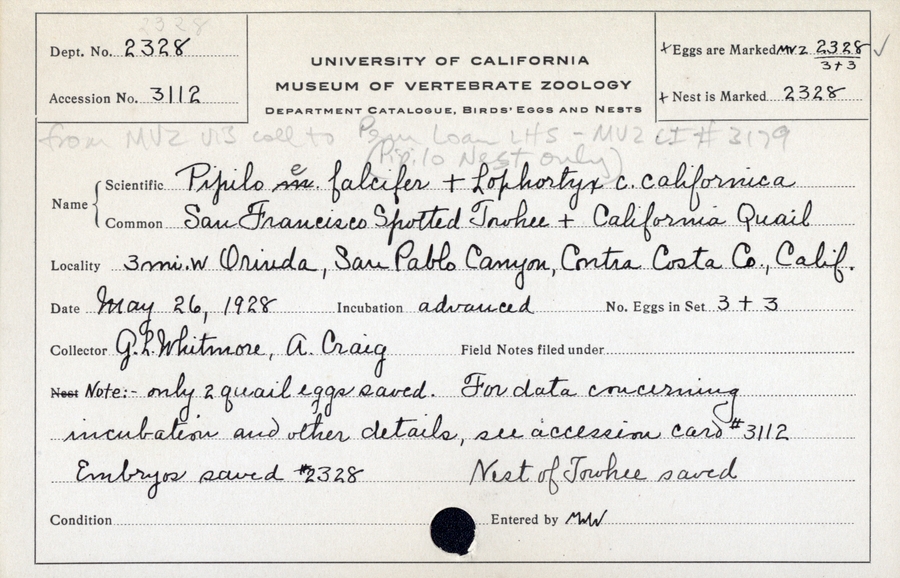 2328
Dept. No. 2328
Accession No. 3112
UNIVERSITY OF CALIFORNIA
MUSEUM OF VERTEBRATE ZOOLOGY
DEPARTMENT CATALOGUE, BIRDS' EGGS AND NESTS
+ Eggs are Marked MVZ 2328 ✓
3+3
+ Nest is Marked 2328
from MVZ coll to Perm Loan LHS - MVZ LI # 3179
(Pipilo Nest only)
Name { Scientific Pipilo m. e. falcifer + Lophortyx c. californica
Common San Francisco Spotted Towhee + California Quail
Locality 3 mi. W Orinda, San Pablo Canyon, Contra Costa Co., Calif.
Date May 26, 1928 Incubation advanced No. Eggs in Set 3 + 3
Collector G. L. Whitmore, A. Craig Field Notes filed under
Nest Note:- only 2 quail eggs saved. For data concerning
incubation and other details, see accession card #3112
Embryos saved #2328 Nest of Towhee saved
Condition Entered by MW